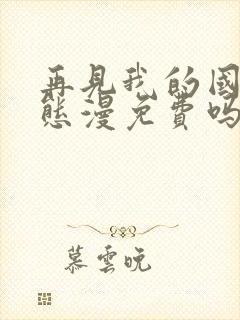 再见我的国
态漫免费吗
慕雲晚